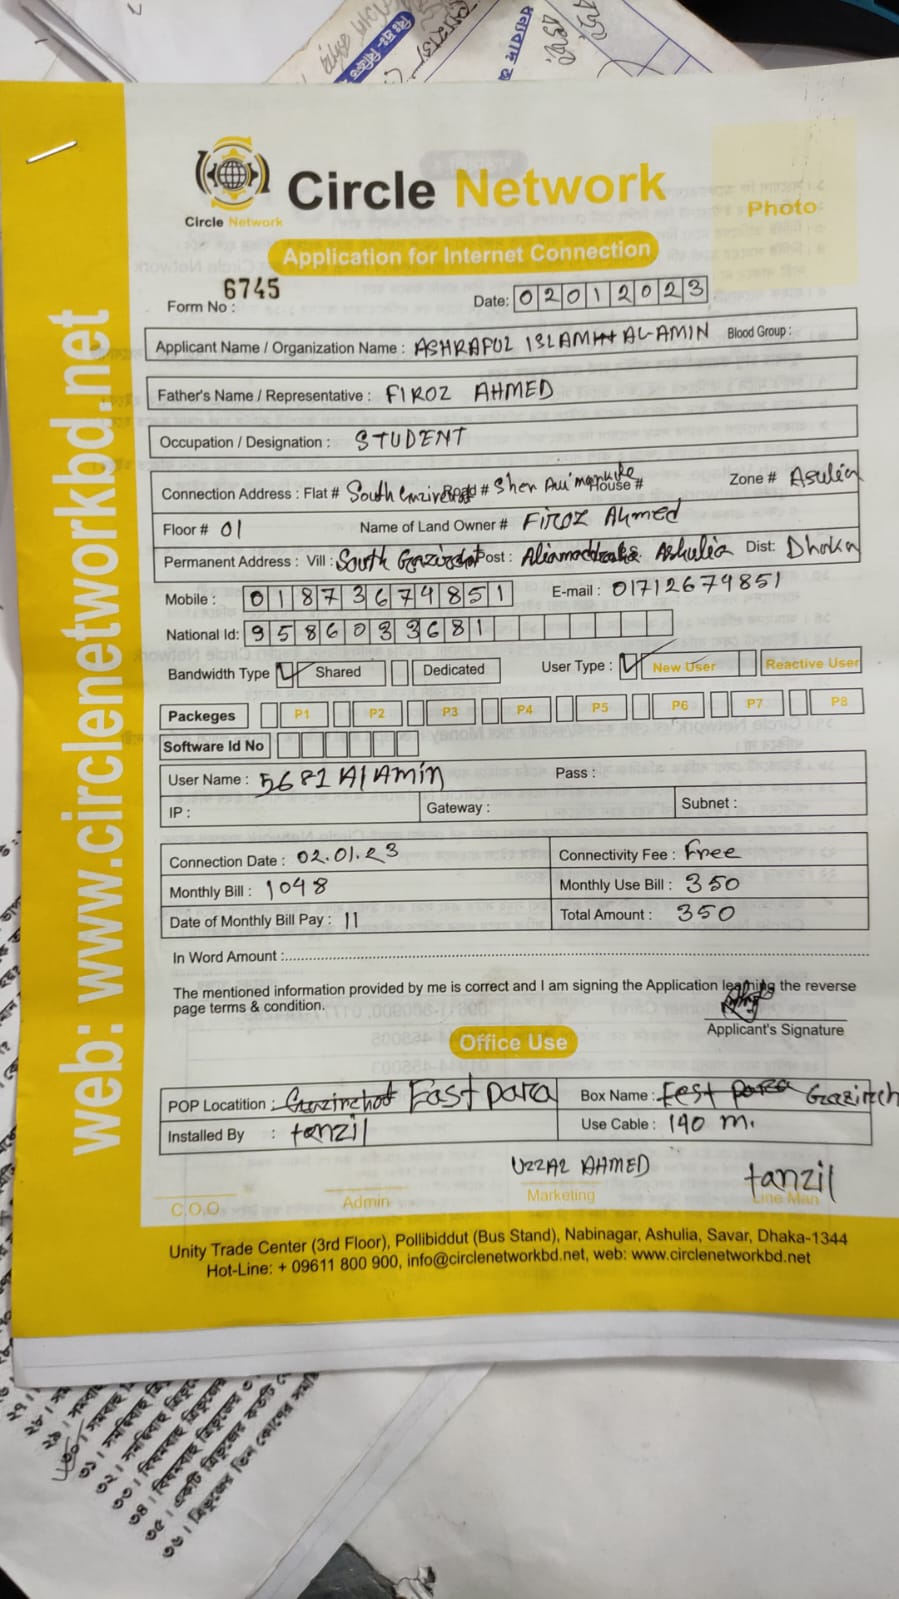 Circle Network
Circle Network
Photo
Application for Internet Connection
Form No : 6745
Date: 02012023
Applicant Name / Organization Name : ASHRAFUL ISLAM AL-AMIN Blood Group :
Father's Name / Representative : FIROZ AHMED
Occupation / Designation : STUDENT
Connection Address : Flat # South Road # Sher Ali House # Zone # Asulia
Floor # 01 Name of Land Owner # Firoz Ahmed
Permanent Address : Vill : South Gazirchot Post : Ashulia Dist: Dhaka
Mobile : 01873674851 E-mail : 01712674851
National Id: 9586033681
Bandwidth Type Shared Dedicated User Type : New User Reactive User
Packeges P1 P2 P3 P4 P5 P6 P7 P8
Software Id No
User Name : 5682 Al Amin Pass :
IP : Gateway : Subnet :
Connection Date : 02.01.23 Connectivity Fee : Free
Monthly Bill : 1048 Monthly Use Bill : 350
Date of Monthly Bill Pay : 11 Total Amount : 350
In Word Amount :
The mentioned information provided by me is correct and I am signing the Application the reverse
page terms & condition.
Applicant's Signature
Office Use
POP Locatition : Gazirchot East para Box Name : Fest para
Installed By : tanzil Use Cable : 140 m.
UZZAL AHMED tanzil
C.O.O Admin Marketing Line Man
Unity Trade Center (3rd Floor), Pollibiddut (Bus Stand), Nabinagar, Ashulia, Savar, Dhaka-1344
Hot-Line: + 09611 800 900, info@circlenetworkbd.net, web: www.circlenetworkbd.net
web: www.circlenetworkbd.net